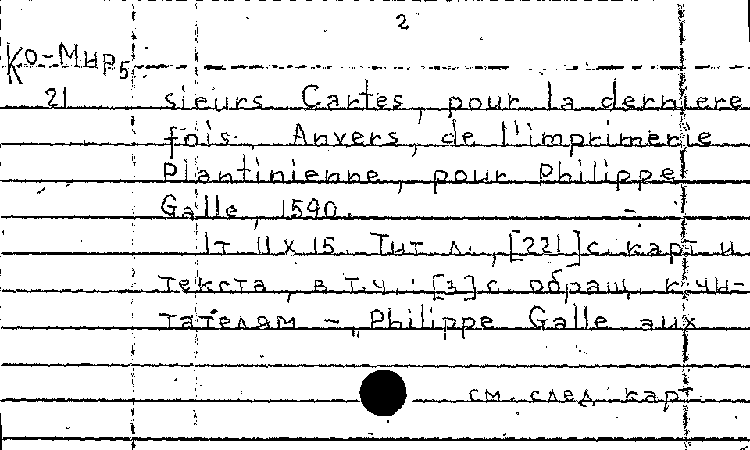 2
Ко-Мир5
21
sieurs Cartes, pour la derniere
fois. Anvers, de l'imprimerie
Plantinienne, pour Philippe
Galle, 1590.
1т. 11 х 15. Тит. л., [221] с. карт и
текста, в т.ч.: [3] с. обращ. к чи-
тателям - „Philippe Galle aux
см. след. карт.